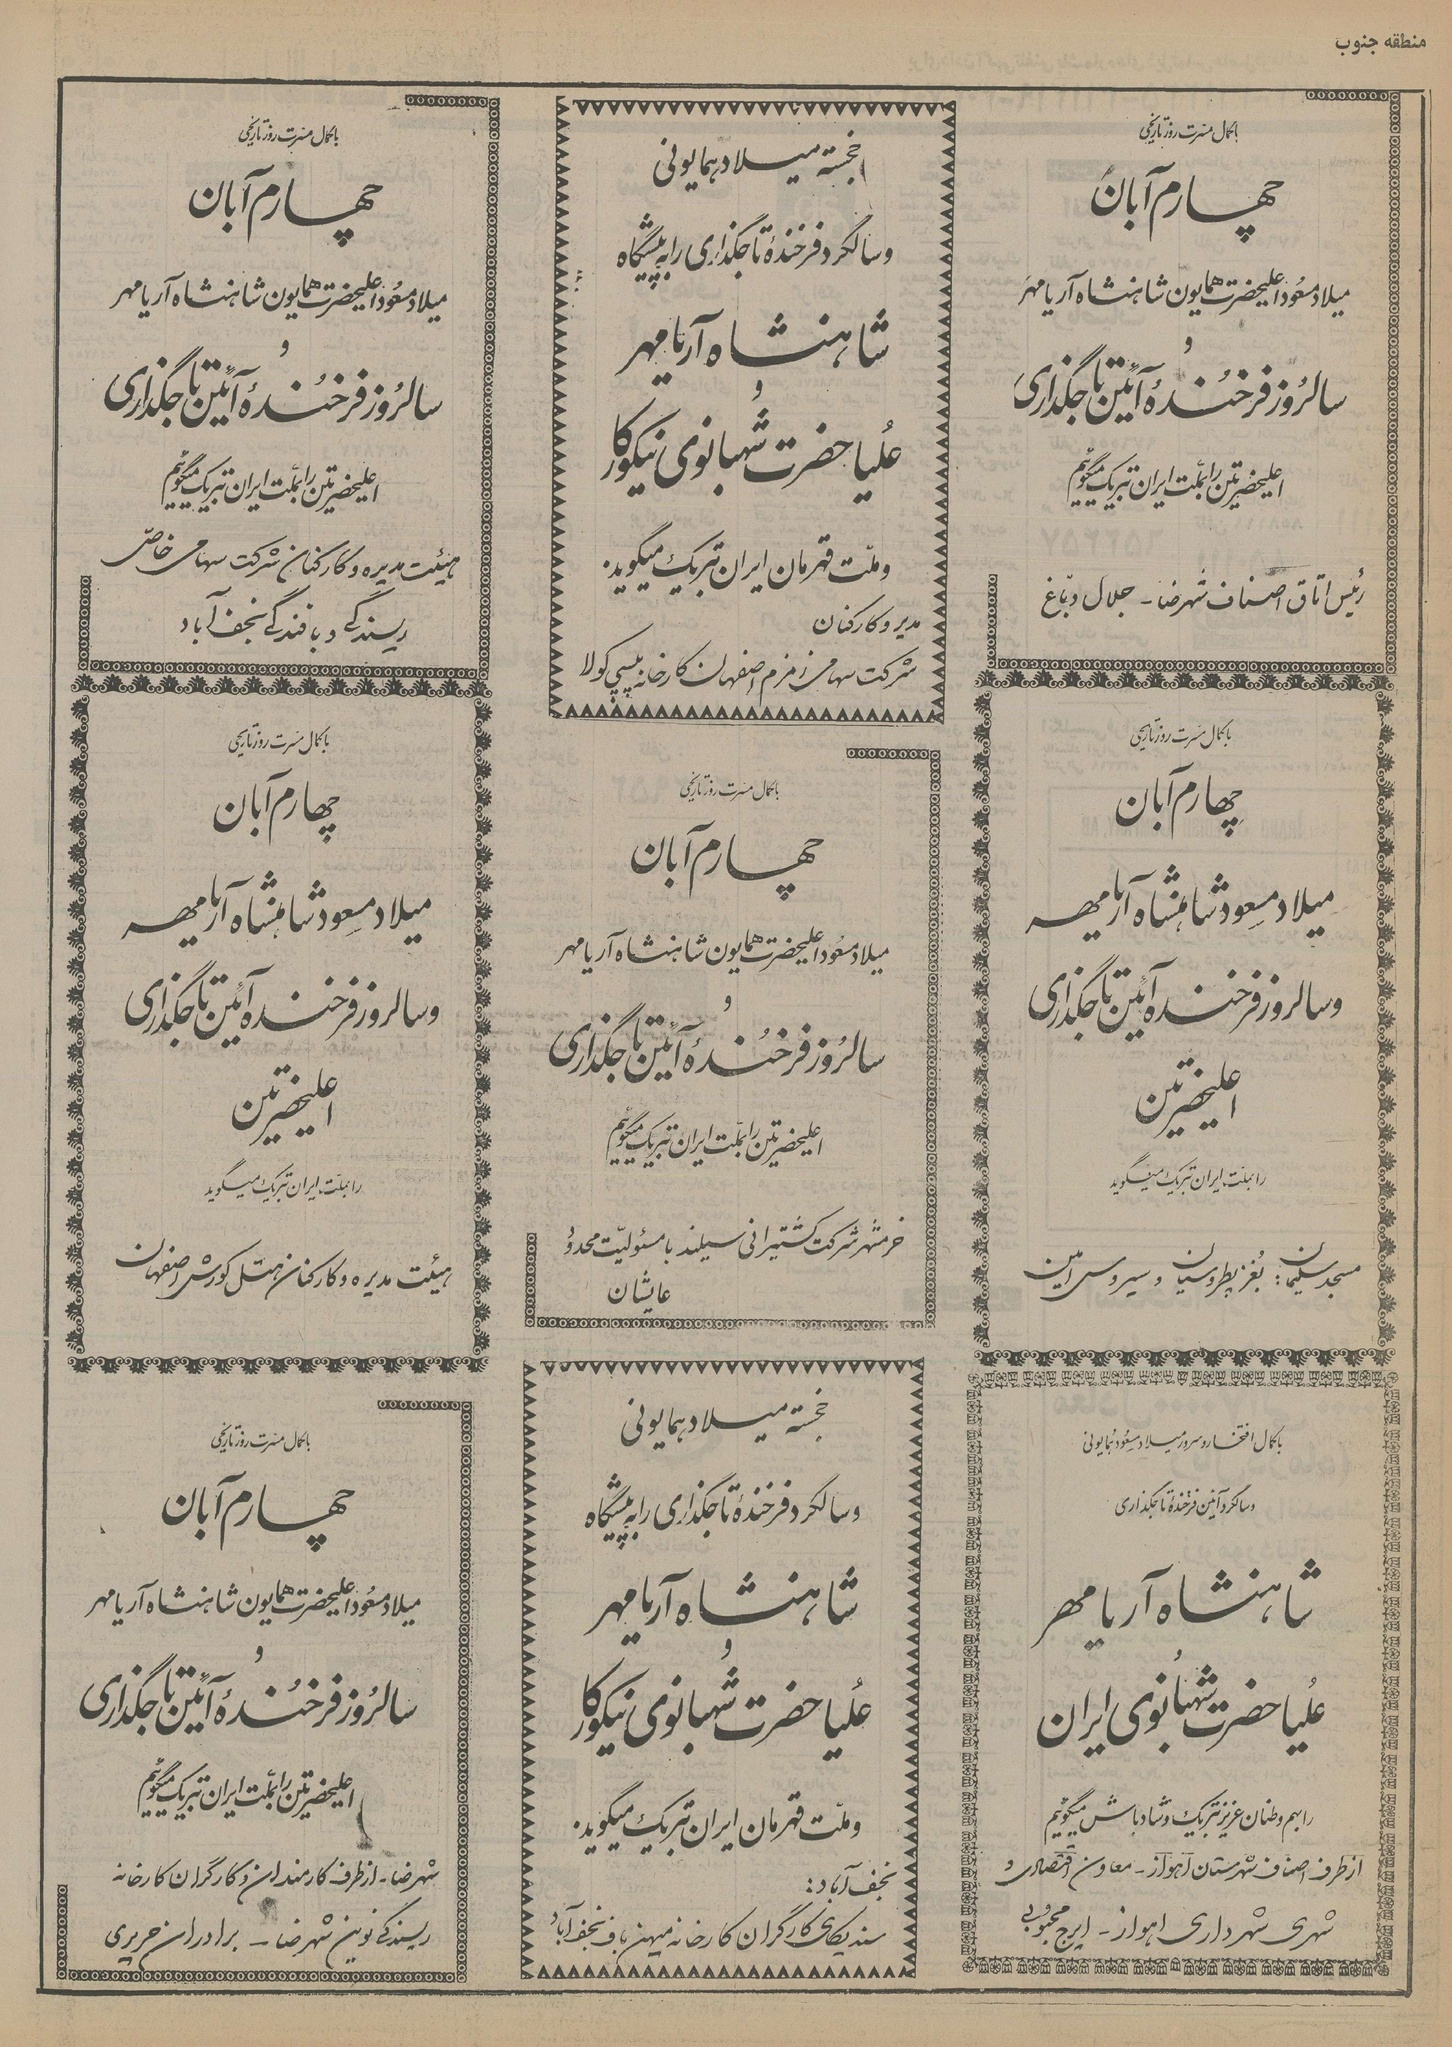 منطقه جنوب
باکمال مسرت روز تاریخی
چهارم آبان
میلاد مسعود اعلیحضرت همایون شاهنشاه آریامهر
و
سالروز فرخنده آئین تاجگذاری
اعلیحضرتین را بملت ایران تبریک میگوئیم
رئیس اتاق اصناف شهرضا - جلال دباغ
خجسته میلاد همایونی
و سالگرد فرخنده تاجگذاری را به پیشگاه
شاهنشاه آریامهر
و
علیاحضرت شهبانوی نیکوکار
و ملت قهرمان ایران تبریک میگوید.
مدیر و کارکنان
شرکت سهامی زمزم اصفهان کارخانه پپسی کولا
باکمال مسرت روز تاریخی
چهارم آبان
میلاد مسعود اعلیحضرت همایون شاهنشاه آریامهر
و
سالروز فرخنده آئین تاجگذاری
اعلیحضرتین را بملت ایران تبریک میگوئیم
هیئت مدیره و کارکنان شرکت سهامی خاص
ریسندگی و بافندگی نجف آباد
باکمال مسرت روز تاریخی
چهارم آبان
میلاد مسعود شاهنشاه آریامهر
و سالروز فرخنده آئین تاجگذاری
اعلیحضرتین
را بملت ایران تبریک میگوید
مسجد سلیمان: بغز پطروسیان و سیروس امین
باکمال مسرت روز تاریخی
چهارم آبان
میلاد مسعود اعلیحضرت همایون شاهنشاه آریامهر
و
سالروز فرخنده آئین تاجگذاری
اعلیحضرتین را بملت ایران تبریک میگوئیم
خرمشهر شرکت کشتیرانی سیلند با مسئولیت محدود
عایشان
باکمال مسرت روز تاریخی
چهارم آبان
میلاد مسعود شاهنشاه آریامهر
و سالروز فرخنده آئین تاجگذاری
اعلیحضرتین
را بملت ایران تبریک میگوید
هیئت مدیره و کارکنان هتل کورش اصفهان
باکمال افتخار و سرور میلاد مسعود همایونی
و سالگرد آئین فرخنده تاجگذاری
شاهنشاه آریامهر
و
علیاحضرت شهبانوی ایران
را بهم وطنان عزیز تبریک و شادباش میگوئیم
از طرف اصناف شهرستان اهواز - معاون اقتصادی و
شهری شهرداری اهواز - ایرج محبوبی
خجسته میلاد همایونی
و سالگرد فرخنده تاجگذاری را به پیشگاه
شاهنشاه آریامهر
و
علیاحضرت شهبانوی نیکوکار
و ملت قهرمان ایران تبریک میگوید.
نجف آباد:
سندیکای کارگران کارخانه میهن باف نجف آباد
باکمال مسرت روز تاریخی
چهارم آبان
میلاد مسعود اعلیحضرت همایون شاهنشاه آریامهر
و
سالروز فرخنده آئین تاجگذاری
اعلیحضرتین را بملت ایران تبریک میگوئیم
شهرضا - از طرف کارمندان و کارگران کارخانه
ریسندگی نوین شهرضا - برادران حریری